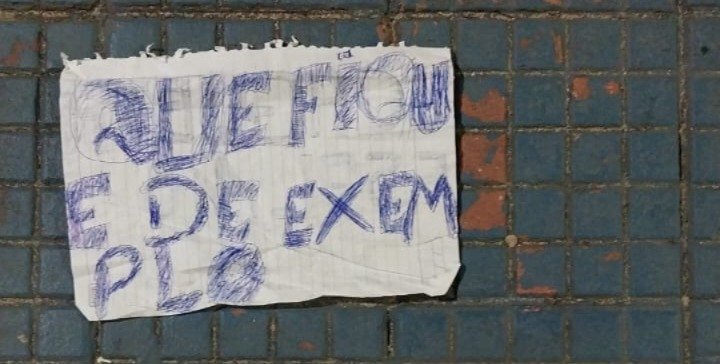 QUE FIQU
E DE EXEM
PLO